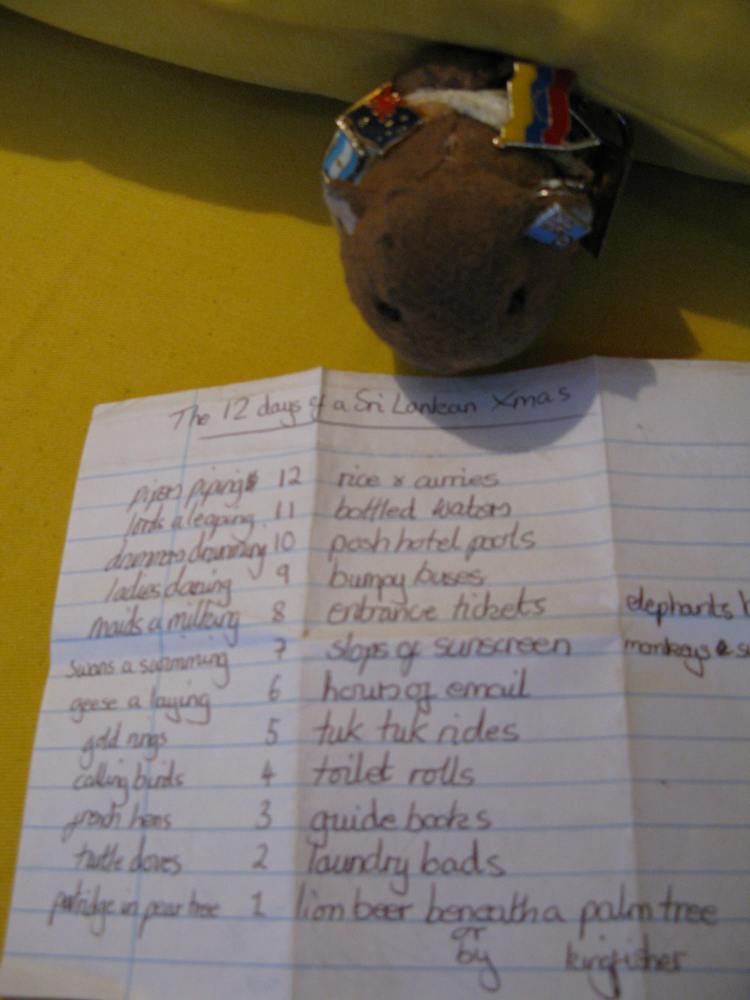 The 12 days of a Sri Lankan Xmas
pipers piping 12 rice & curries
lords a leaping 11 bottled waters
drummers drumming 10 posh hotel pools
ladies dancing 9 bumpy buses
maids a milking 8 entrance tickets elephants
swans a swimming 7 slops of sunscreen monkeys &
geese a laying 6 hours of email
gold rings 5 tuk tuk rides
calling birds 4 toilet rolls
french hens 3 guide books
turtle doves 2 laundry bads
patridge in pear tree 1 lion beer beneath a palm tree
or
by kingfisher